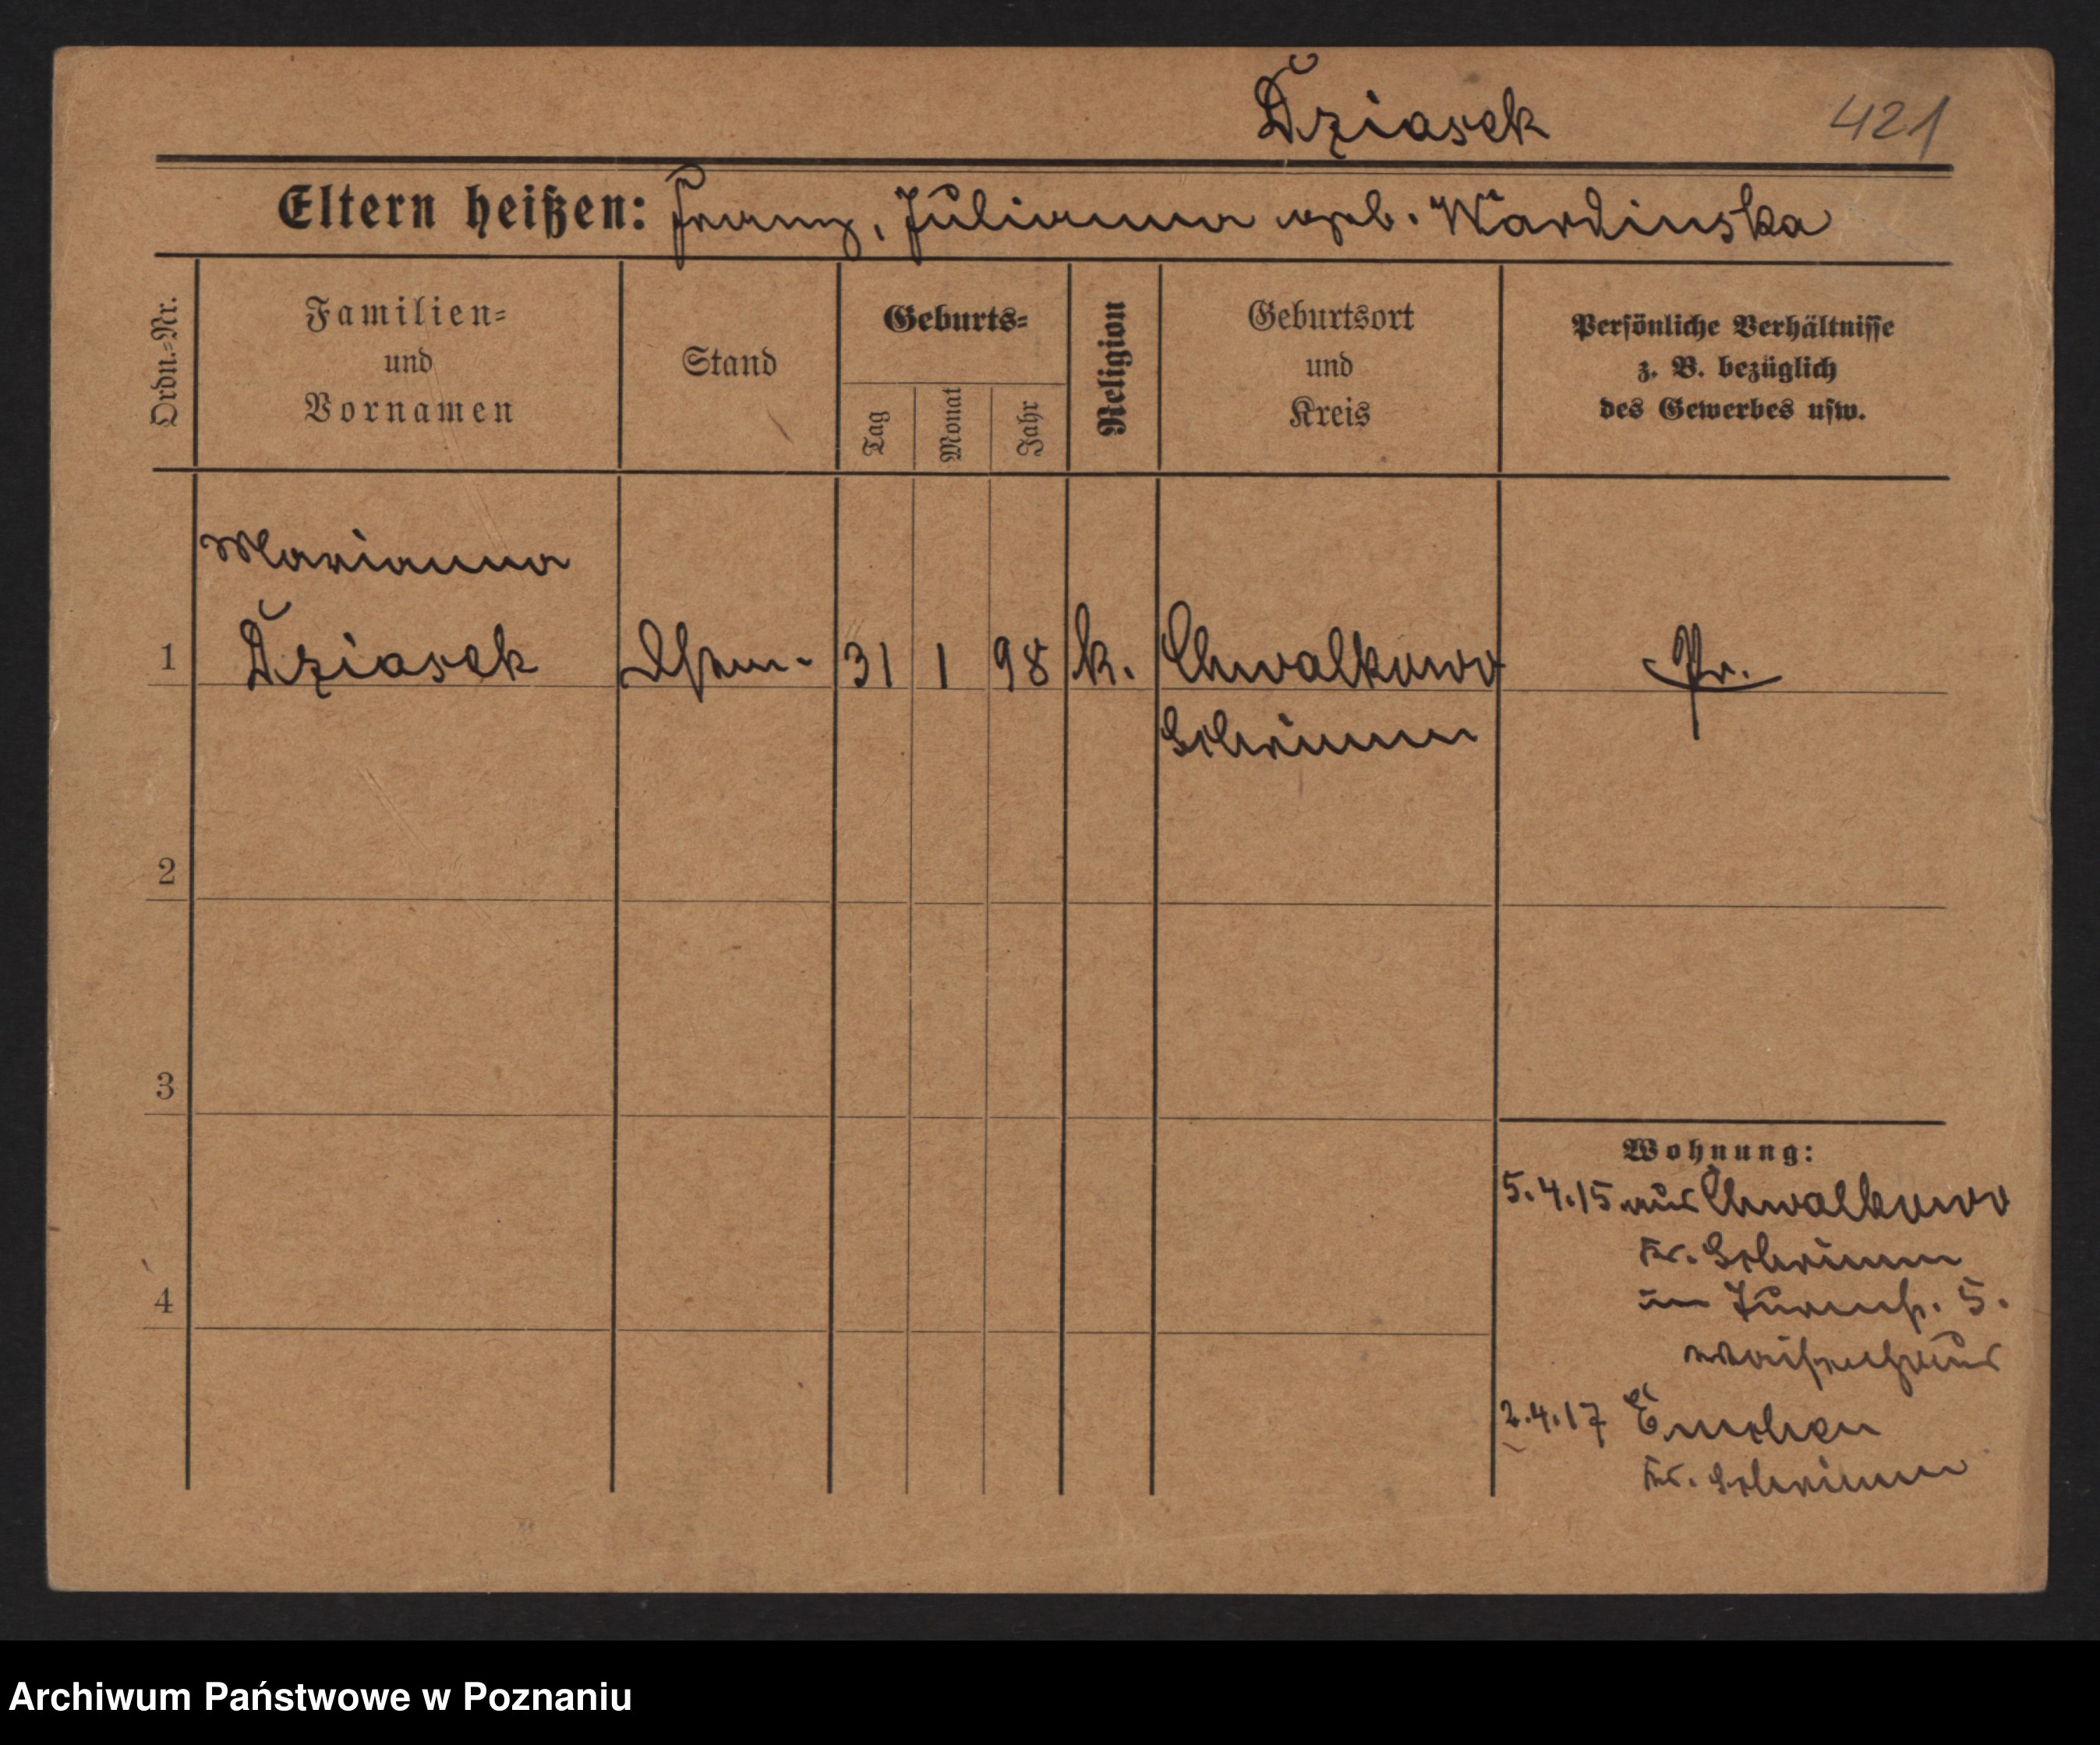 Dziasek 421
Eltern heißen: Franz, Julianna geb. Wardinska
Ordn.-Nr.
Familien-
und
Vornamen
Stand
Geburts-
Tag
Monat
Jahr
Religion
Geburtsort
und
Kreis
Persönliche Verhältnisse
z. B. bezüglich
des Gewerbes usw.
Marianna
1 Dziasek 31 1 98 k. Chwalkowo Pr.
Schrimm
2
3
4
Wohnung:
5.4.15 aus Chwalkowo
Kr. Schrimm
Turmstr. 5.
Waisenhaus
2.4.17 Emchen
Kr. Schrimm
Archiwum Państwowe w Poznaniu